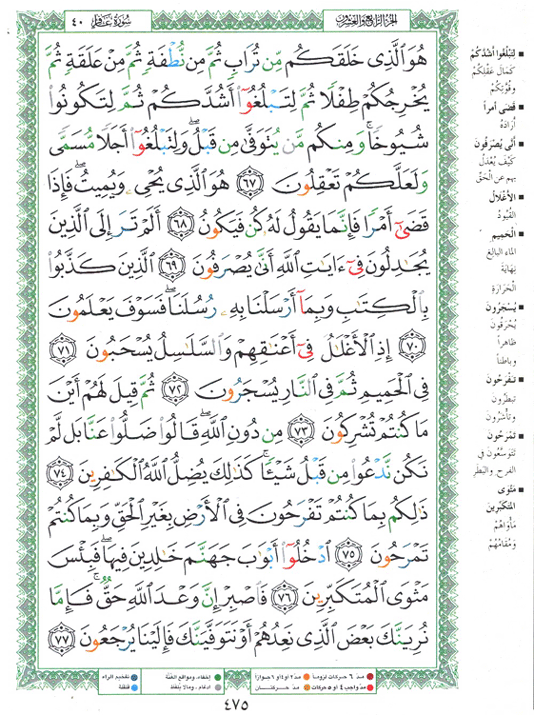 الجزء الرابع والعشرون
سورة غافر ٤٠
هُوَ الَّذِي خَلَقَكُم مِّن تُرَابٍ ثُمَّ مِن نُّطْفَةٍ ثُمَّ مِنْ عَلَقَةٍ ثُمَّ
يُخْرِجُكُمْ طِفْلًا ثُمَّ لِتَبْلُغُوٓا۟ أَشُدَّكُمْ ثُمَّ لِتَكُونُوا۟
شُيُوخًا ۚ وَمِنكُم مَّن يُتَوَفَّىٰ مِن قَبْلُ ۖ وَلِتَبْلُغُوٓا۟ أَجَلًا مُّسَمًّى
وَلَعَلَّكُمْ تَعْقِلُونَ ٦٧ هُوَ الَّذِي يُحْيِۦ وَيُمِيتُ ۖ فَإِذَا
قَضَىٰٓ أَمْرًا فَإِنَّمَا يَقُولُ لَهُۥ كُن فَيَكُونُ ٦٨ أَلَمْ تَرَ إِلَى الَّذِينَ
يُجَٰدِلُونَ فِىٓ ءَايَٰتِ اللَّهِ أَنَّىٰ يُصْرَفُونَ ٦٩ الَّذِينَ كَذَّبُوا۟
بِالْكِتَٰبِ وَبِمَآ أَرْسَلْنَا بِهِۦ رُسُلَنَا ۖ فَسَوْفَ يَعْلَمُونَ
٧٠ إِذِ الْأَغْلَٰلُ فِىٓ أَعْنَٰقِهِمْ وَالسَّلَٰسِلُ يُسْحَبُونَ ٧١
فِي الْحَمِيمِ ثُمَّ فِي النَّارِ يُسْجَرُونَ ٧٢ ثُمَّ قِيلَ لَهُمْ أَيْنَ
مَا كُنتُمْ تُشْرِكُونَ ٧٣ مِن دُونِ اللَّهِ ۖ قَالُوا۟ ضَلُّوا۟ عَنَّا بَل لَّمْ
نَكُن نَّدْعُوا۟ مِن قَبْلُ شَيْـًٔا ۚ كَذَٰلِكَ يُضِلُّ اللَّهُ الْكَٰفِرِينَ ٧٤
ذَٰلِكُم بِمَا كُنتُمْ تَفْرَحُونَ فِي الْأَرْضِ بِغَيْرِ الْحَقِّ وَبِمَا كُنتُمْ
تَمْرَحُونَ ٧٥ ادْخُلُوٓا۟ أَبْوَٰبَ جَهَنَّمَ خَٰلِدِينَ فِيهَا ۖ فَبِئْسَ
مَثْوَى الْمُتَكَبِّرِينَ ٧٦ فَاصْبِرْ إِنَّ وَعْدَ اللَّهِ حَقٌّ ۚ فَإِمَّا
نُرِيَنَّكَ بَعْضَ الَّذِي نَعِدُهُمْ أَوْ نَتَوَفَّيَنَّكَ فَإِلَيْنَا يُرْجَعُونَ ٧٧
■ لِتَبْلُغُوا أَشُدَّكُمْ
كَمَالَ عَقْلِكُمْ
وَقُوَّتِكُمْ
■ قَضَى أَمْرًا
أَرَادَهُ
■ أَنَّى يُصْرَفُونَ
كَيْفَ يُعْدَلُ
بهم عن الحَقِّ
■ الأَغْلَالُ
القُيُودُ
■ الحَمِيمِ
الماءِ البالِغِ
نِهَايَةَ
الحَرَارَةِ
■ يُسْجَرُونَ
يُحْرَقُونَ
ظاهراً
وباطناً
■ تَفْرَحُونَ
تَبْطَرُونَ
وتَأْشَرُونَ
■ تَمْرَحُونَ
تَتَوَسَّعُونَ في
الفَرَحِ والبَطَرِ
■ مَثْوَى
المتَكَبِّرينَ
مَأْوَاهُمْ
وَمُقَامُهُمْ
● مدّ ٦ حركات لزوماً ● مدّ ٢ أو ٤ أو ٦ جوازاً ● إخفاء، ومواقع الغُنَّة ● تفخيم الراء
● مدّ واجب ٤ أو ٥ حركات ● مدّ حركتان ● ادغام، وما لا يلفظ ● قلقلة
٤٧٥